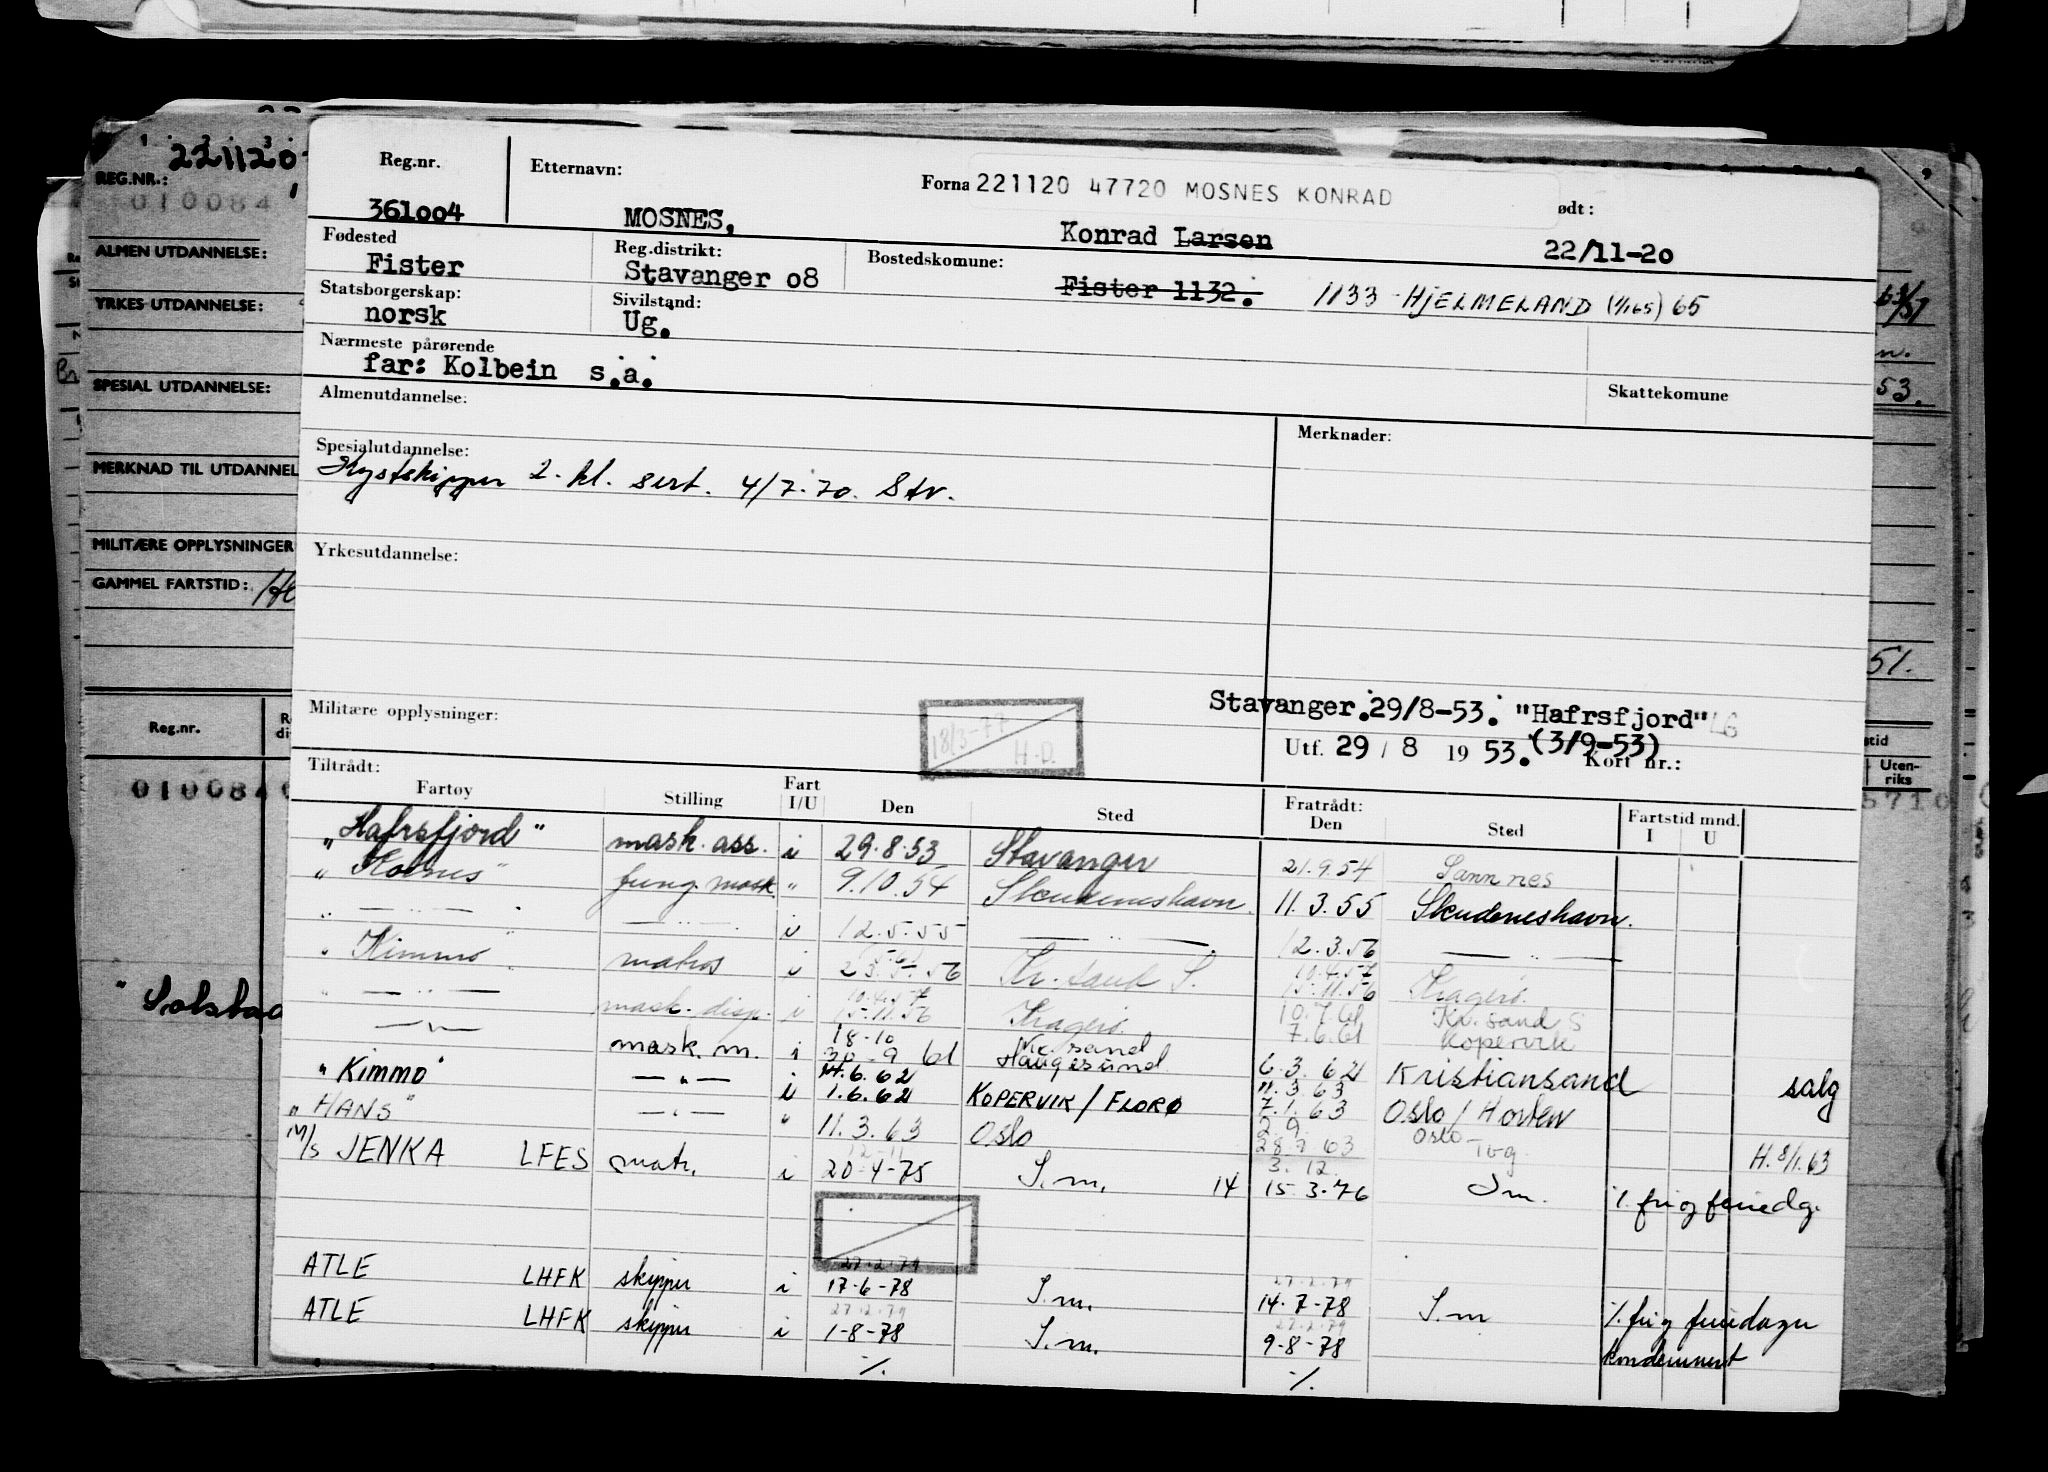 221120
REG.NR.:
010084
ALMEN UTDANNELSE:
YRKES UTDANNELSE:
SPESIAL UTDANNELSE:
MERKNAD TIL UTDANNEL
MILITÆRE OPPLYSNINGER
GAMMEL FARTSTID:
Reg.nr.
010084
Reg.nr. Etternavn: Forna 221120 47720 MOSNES KONRAD født:
361oo4 MOSNES, Konrad Larsen 22/11-2o
Fødested Reg.distrikt: Bostedskomune:
Fister Stavanger o8 Fister 1132. 1133 HJELMELAND (1/1 65) 65
Statsborgerskap: Sivilstand:
norsk Ug.
Nærmeste pårørende
far: Kolbein s.a.
Almenutdannelse: Skattekomune
Spesialutdannelse: Merknader:
Kystskipper 2. kl. sert. 4/7.70. Stv.
Yrkesutdannelse:
Militære opplysninger: 18/3-77 H.D.
Stavanger.29/8-53. "Hafrsfjord" LG
Utf. 29 / 8 19 53. (3/9-53) Kort nr.:
Tiltrådt: Fratrådt:
Fartøy Stilling Fart I/U Den Sted Den Sted Fartstid mnd. I U
"Hafrsfjord" mask. ass. i 29.8.53 Stavanger 21.9.54 Sannnes
" " fung. mask. " 9.10.54 Skudeneshavn 11.3.55 Skudeneshavn.
— " — — " — i 12.5.55 — " — 12.3.56 — " —
"Kimmo" matros i 23.5.56 Kr. sand S. 10.4.57 15.11.56 Kragerø.
— " — mask. disp. i 10.4.57 15.11.56 Kragerø. 10.7.61 Kr. sand S
7.6.61 Kopervik
— " — mask. m. i 18-10 30-9 61 Kr. sand Haugesund 6.3.62 Kristiansand salg
"Kimmo" — " — i 1.6.62 KOPERVIK / FLORØ 11.3.63 7.1.63 Oslo / Horten
"HANS" — " — " 11.3.63 Oslo 2.9 28.7 63 Oslo Tvg. H. 8/1.63
M/S JENKA LFES matr. i 20-4-75 S.m. 14 3.12 15.3.76 Sm. ⁒ fri og feriedg.
27.2.79 27.2.79
ATLE LHFK skipper i 17-6-78 S.m. 14-7-78 S.m ⁒ fri og feriedager
27.2.79 27.2.79
ATLE LHFK skipper i 1-8-78 S.m. 9-8-78 kondemnert
⁒ ⁒
n.
53.
51.
Uten-
riks
5710